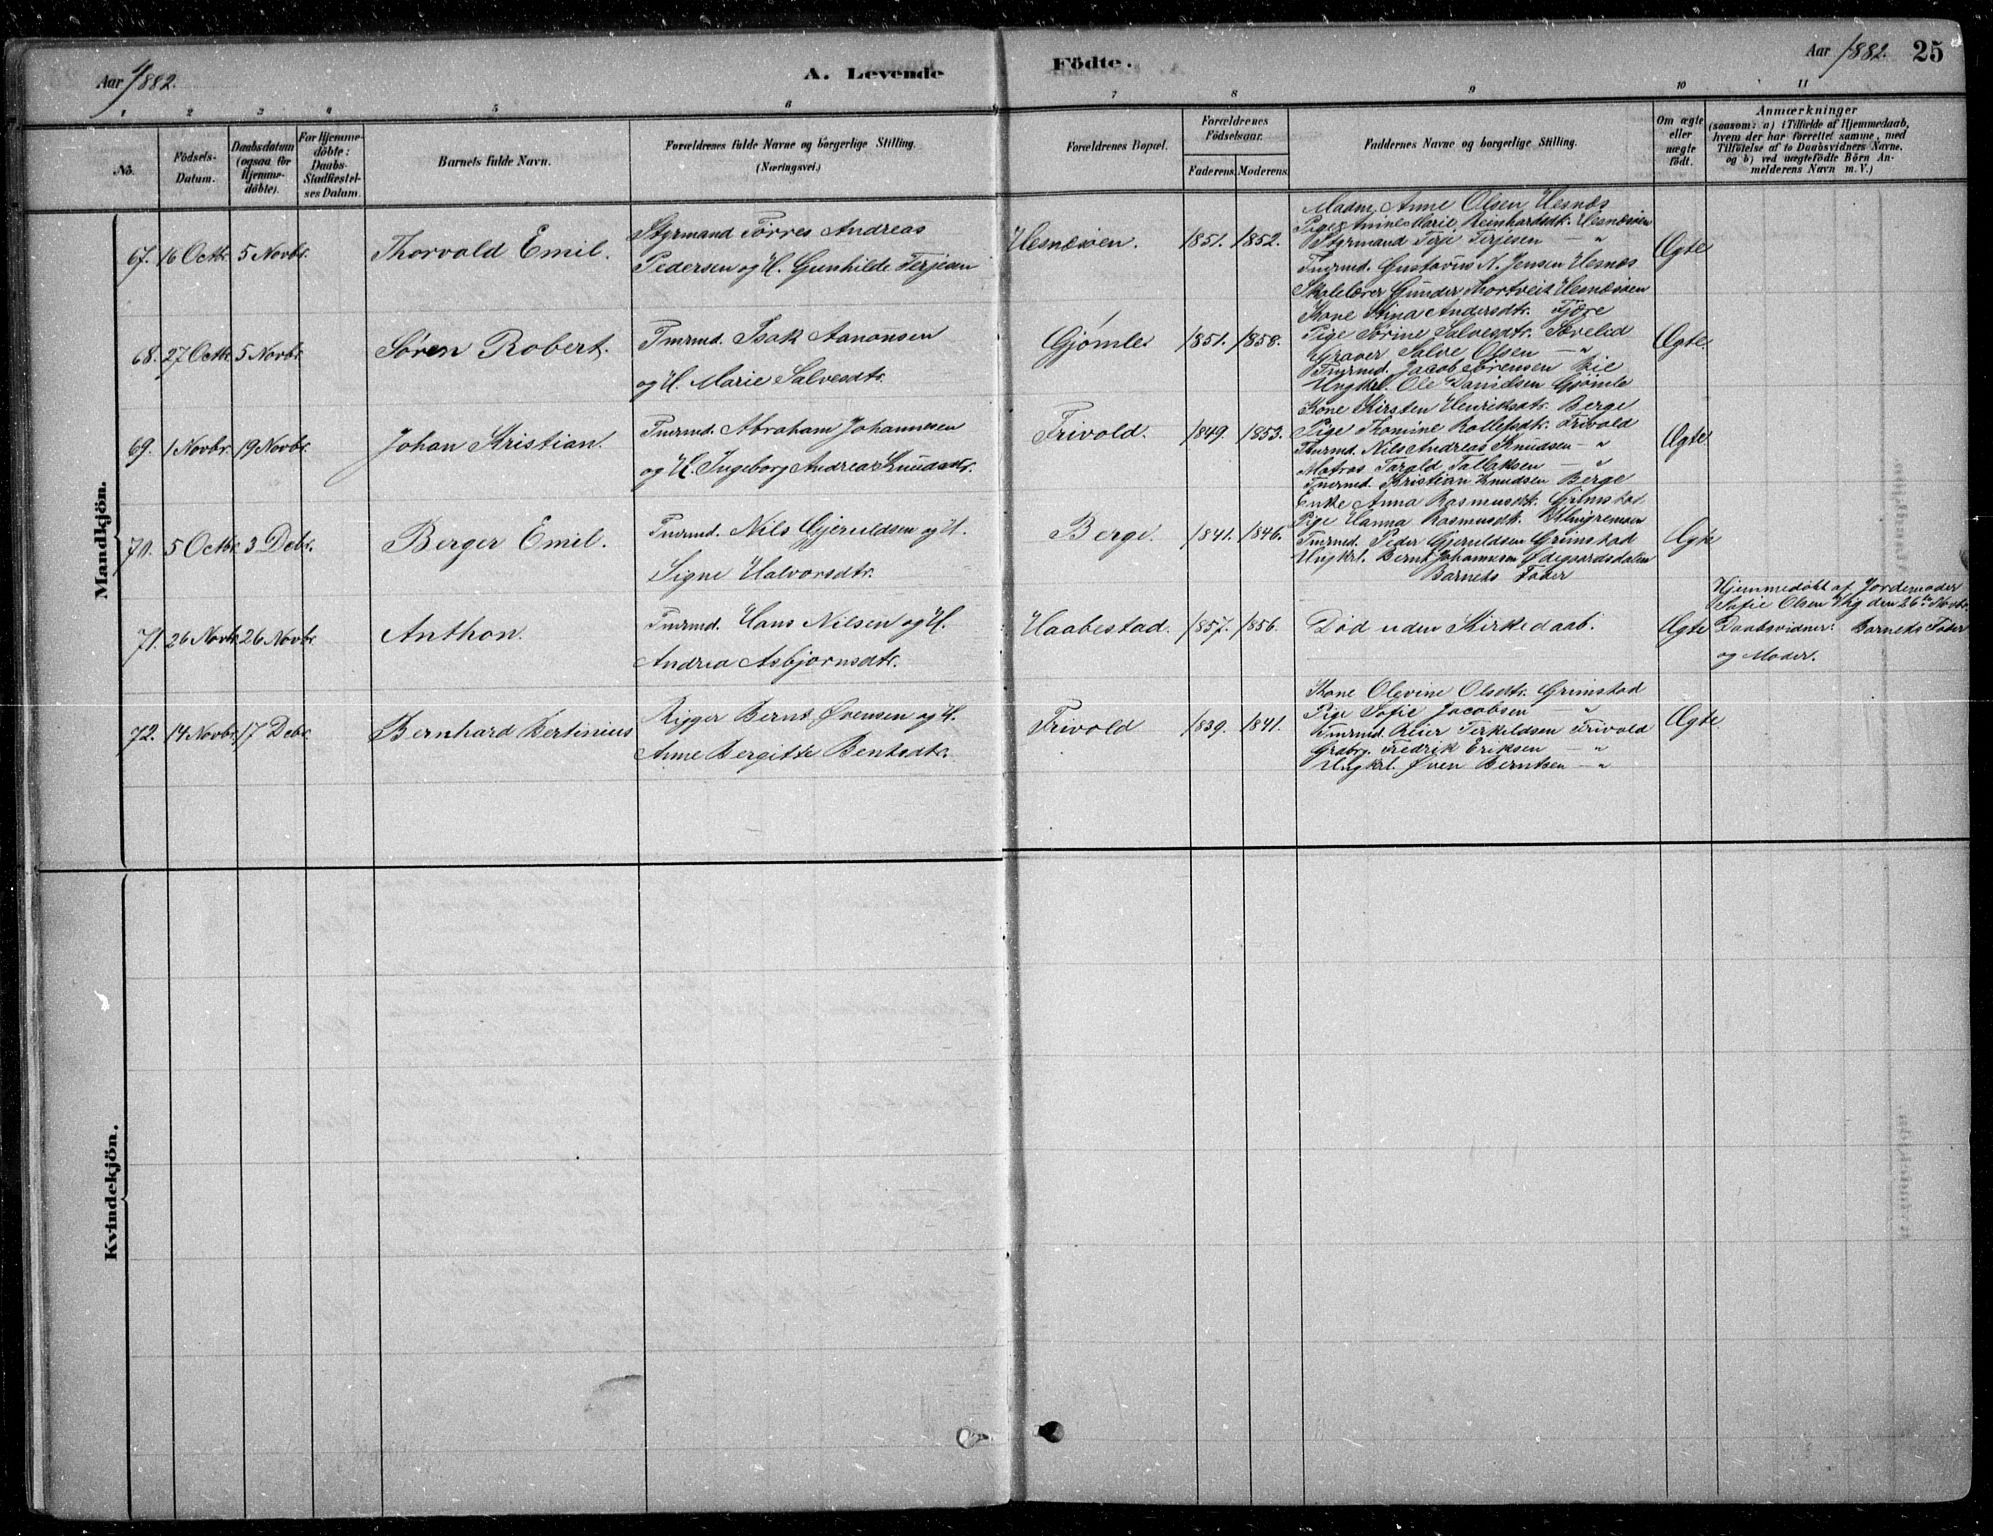 Aar 1882.
A. Levende
Födte.
Aar 1882.
25
1 2 3 4 5 6 7 8 9 10 11
No.
Födsels-
Datum.
Daabsdatum
(ogsaa for
Hjemme-
döbte).
For Hjemme-
döbte:
Daabs-
Stadfæstel-
ses Datum.
Barnets fulde Navn.
Forældrenes fulde Navne og borgerlige Stilling.
(Næringsvei.)
Forældrenes Bopæl.
Forældrenes
Födselsaar.
Faderens.
Moderens.
Faddernes Navne og borgerlige Stilling.
Om ægte
eller
uægte
födt.
Anmærkninger
(saasom: a) i Tilfælde af Hjemmedaab,
hvem der har forrettet samme, med
Tilföielse af to Daabsvidners Navne.
og b) ved uægtefödte Börn An-
melderens Navn m. V.)
Mandkjön.
67. 16 Octbr 5 Novbr.
Thorvald Emil.
Styrmand Tørres Andreas
Pedersen og H. Gunhilde Terjesen
Hesnæsøen.
1851. 1852.
Madm. Anne Olsen Hesnæs
Pige Anine Marie Reinhardsdt. Hesnæsøen
Styrmand Terje Terjesen — "
Tmrmd. Gustavus N. Jensen Hesnæs
Skolelærer Gunder Thortveit Hesnæsøen
Ægte
68. 27 Octbr 5 Novbr.
Søren Robert.
Tmrmd. Isak Aanonsen
og H. Marie Salvesdtr.
Gjømle.
1851. 1858.
Kone Stina Andersdtr. Fjære
Pige Sørine Salvesdtr.
Graver Salve Olsen — "
Tmrmd. Jacob Sørensen Bie
Ungkrl. Ole Danielsen Gjømle
Ægte.
69. 1 Novbr. 19 Novbr.
Johan Kristian.
Tmrmd. Abraham Johannesen
og H. Ingeborg Andrea Knudsdtr.
Frivold.
1849. 1853.
Kone Kirsten Henriksdtr. Berge
Pige Thomine Rollefsdtr. Frivold
Tmrmd. Nils Andreas Knudsen — "
Matros Tarald Tallaksen — "
Tmrmd. Kristian Knudsen Berge
Ægte
70. 5 Octbr. 3 Debr.
Berger Emil.
Tmrmd. Nils Gjeruldsen og H.
Signe Halvorsdtr.
Berge.
1841. 1846.
Enke Anna Rasmusdt. Grimstad
Pige Hanna Rasmusdt.
Tmrmd. Peder Gjeruldsen Grimstad
Ungkrl. Bernt Johannesen Ødegaardsdalen
Barnets Fader
Ægte
71. 26 Novbr 26 Novbr
Anthon.
Tmrmd. Hans Nilsen og H.
Andrea Asbjørnsdtr.
Haabestad.
1857. 1856.
Død uden Kirkedaab.
Ægte
Hjemmedøbt af Jordemoder
Sofie Olsen Vig den 26te Novbr.
Daabsvidner: Barnets Fader
og Moder.
72. 14 Novbr. 17 Debr.
Bernhard Bertinius
Rigger Bernt Øvensen og H.
Anne Bergitte Bentsdtr.
Frivold
1839. 1841.
Kone Olevine Olsdtr. Grimstad
Pige Sofie Jacobsen — "
Tmrmd. Reier Terkildsen Frivold
Grdbrg. Fredrik Eriksen — "
Ungkrl. Øven Berntsen — "
Ægte
Kvindekjön.